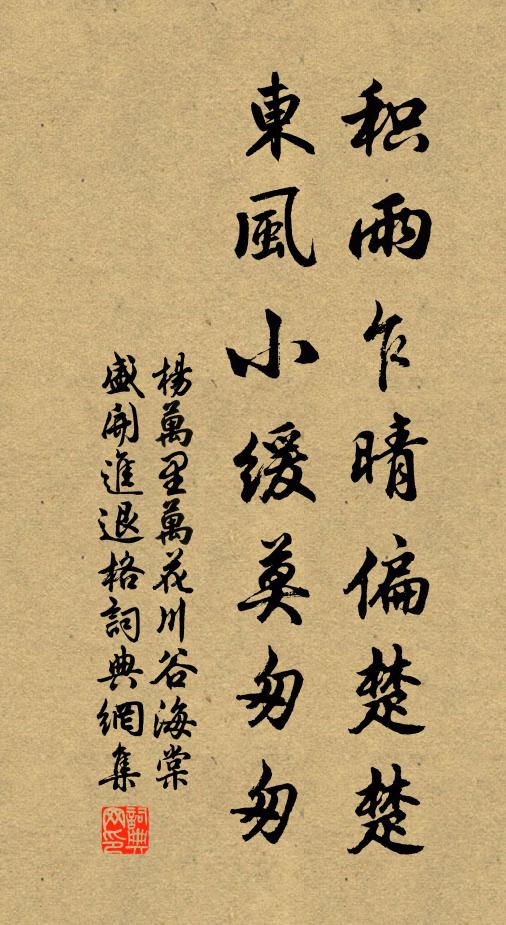 积雨乍晴偏楚楚
東風小緩莫匆匆
楊萬里萬花川谷海棠
盛開進退格詞典網集
詞典網印